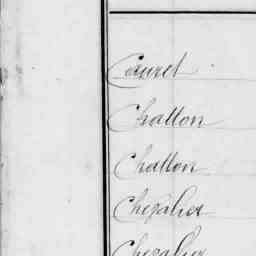 Couret
Chatton
Chatton
Chevalier
Chevalier